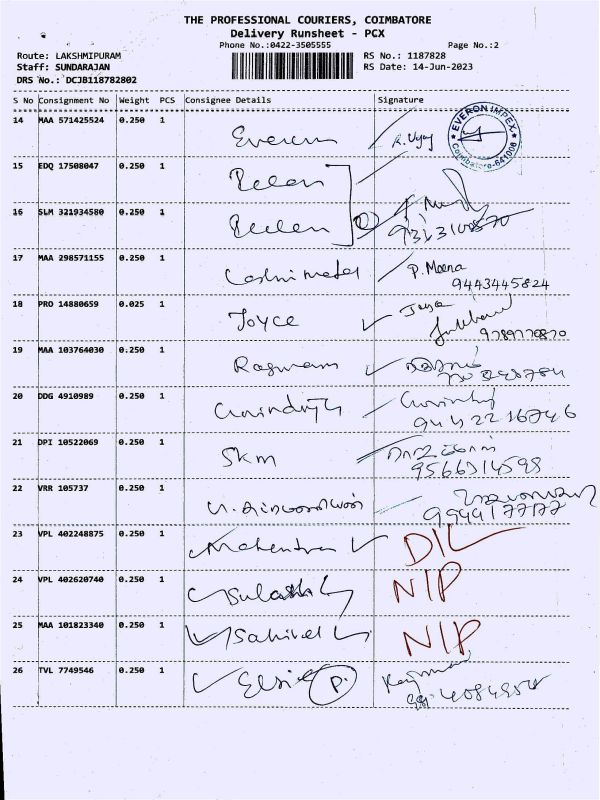 THE PROFESSIONAL COURIERS, COIMBATORE
Delivery Runsheet - PCX
Phone No.:0422-3505555 Page No.:2
Route: LAKSHMIPURAM RS No.: 1187828
Staff: SUNDARAJAN RS Date: 14-Jun-2023
DRS No.: DCJB118782802
S No Consignment No Weight PCS Consignee Details Signature
14 MAA 571425524 0.250 1 Everon R. Vijay
EVERON IMPEX
Coimbatore-641006
15 EDQ 17508047 0.250 1
16 SLM 321934580 0.250 1
17 MAA 298571155 0.250 1 P. Meena
9443445824
18 PRO 14880659 0.025 1 Joyce Joyce
9789770870
19 MAA 103764030 0.250 1
20 DDG 4910989 0.250 1
9442216746
21 DPI 10522069 0.250 1 SKM
9566314598
22 VRR 105737 0.250 1
9944177177
23 VPL 402248875 0.250 1 Mahendran DIL
24 VPL 402620740 0.250 1 NIP
25 MAA 101823340 0.250 1 NIP
26 TVL 7749546 0.250 1 Elsie P.